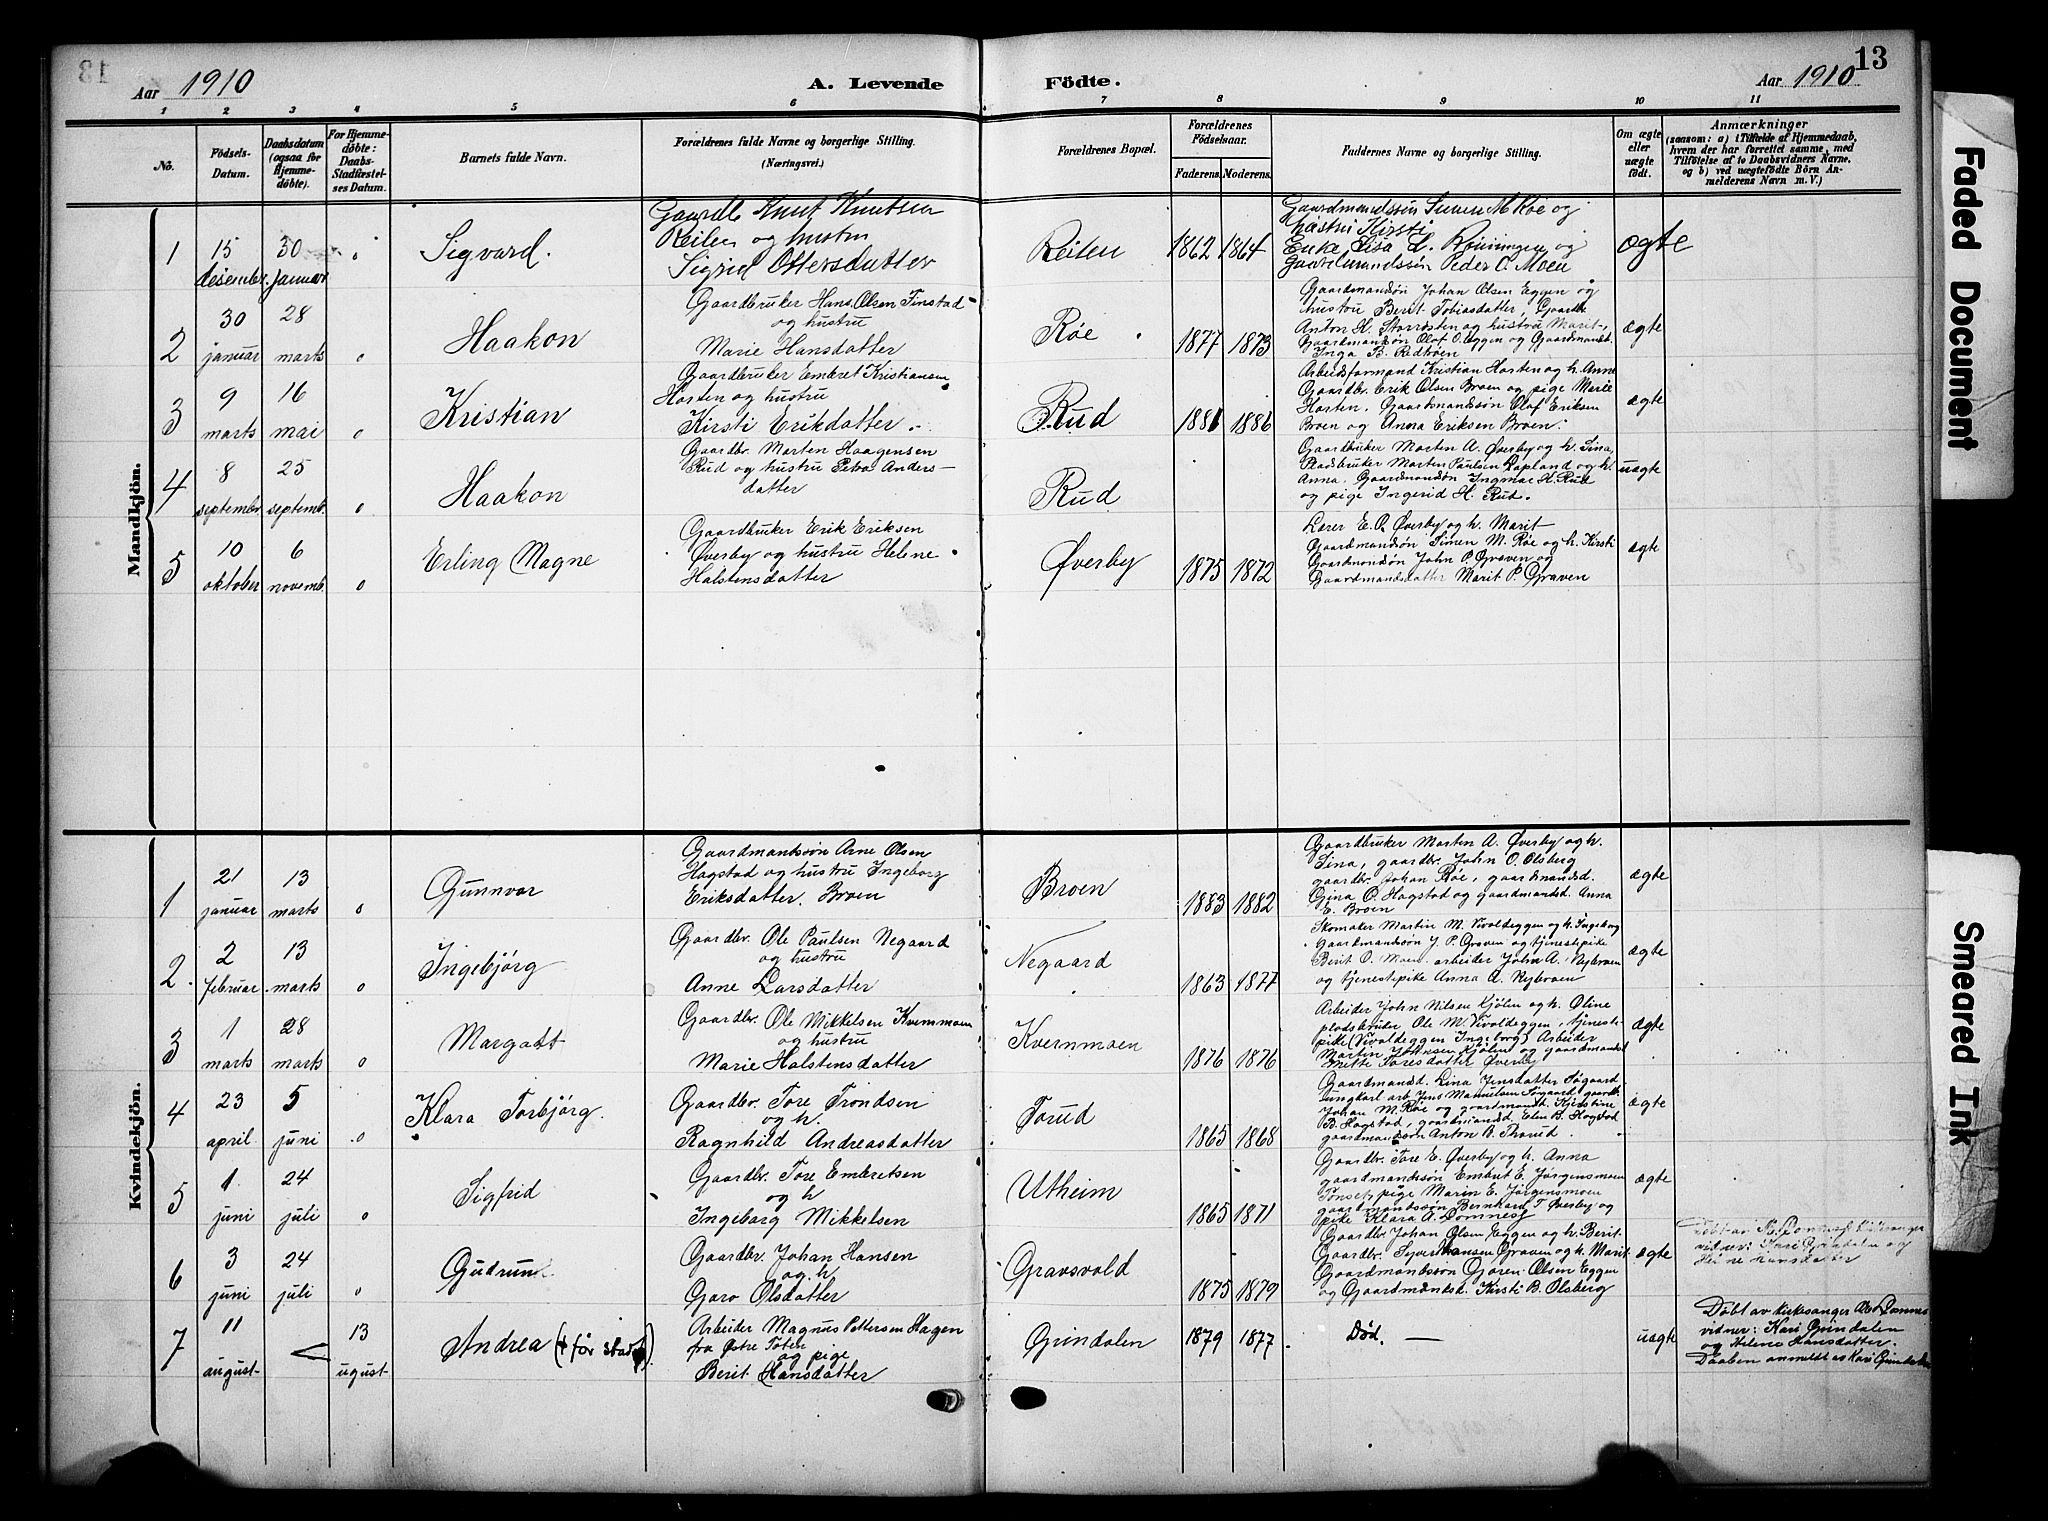 13
Aar 1910
A. Levende Födte.
Aar 1910
1 2 3 4 5 6 7 8 9 10 11
No.
Födsels-
Datum.
Daabsdatum
(ogsaa for
Hjemme-
döbte).
For Hjemme-
döbte:
Daabs-
Stadfæstel-
ses Datum.
Barnets fulde Navn.
Forældrenes fulde Navne og borgerlige Stilling.
(Næringsvei.)
Forældrenes Bopæl.
Forældrenes
Födselsaar.
Faderens. Moderens.
Faddernes Navne og borgerlige Stilling.
Om ægte
eller
uægte
födt.
Anmærkninger
(saasom: a) i Tilfælde af Hjemmedaab,
hvem der har forrettet samme, med
Tilföielse af to Daabsvidners Navne,
og b) ved uægtefödte Börn An-
melderens Navn m. V.)
Mandkjön.
1
15
desember
30
januar
0
Sigvard.
Gaardb Knut Knutsen
Reiten og hustru
Sigrid Ottersdatter
Reiten
1862 1864
Gaardmandssøn Simen M Røe og
hustru Kirsti
Enke Lisa L. Rønningen og
Gaardmandssøn Peder O. Moen
ægte
2
30
januar
28
marts
0
Haakon
Gaardbruker Hans Olsen Finstad
og hustru
Marie Hansdatter
Røe
1877 1873
Gaardmandsøn Johan Olsen Eggen og
hustru Berit Tobiasdatter, Gaardb
Anton H. Storrøsten og hustru Marit,
Gaardmandsøn Olof O. Eggen og Gaardmandsd.
Inga B. Rødtrøen
ægte
3
9
marts
16
mai
0
Kristian
Gaardbruker Embret Kristiansen
Horten og hustru
Kirsti Erikdatter
Rud
1881 1886
Arbeidsformand Kristian Horten og h. Anne
Gaardbr. Erik Olsen Broen og pige Marie
Horten. Gaardmandssøn Olof Eriksen
Broen og Anna Eriksen Broen.
ægte
4
8
september
25
septemb.
0
Haakon
Gaardbr. Morten Haagensen
Rud og hustru Petra Anders-
datter
Rud
Gaardbruker Morten A. Øverby og h. Sina,
Pladsbruker Morten Paulsen Lapland og h.
Anna, Gaardmandsøn Ingmar H. Rud
og pige Ingerid H. Rud.
uægte
5
10
oktober
6
novemb.
0
Erling Magne
Gaardbruker Erik Eriksen
Øverby og hustru Helene
Halstensdatter
Øverby
1875 1872
Lærer E. O. Øverby og h. Marit
Gaardmandsøn Simen M. Røe og h. Kirsti
Gaardmandsøn John P. Graven og
Gaardmandsdatter Marit P. Graven
ægte
Kvindekjön.
1
21
januar
13
marts
0
Gunnvor
Gaardmandssøn Arne Olsen
Hagstad og hustru Ingeborg
Eriksdatter Broen
Broen
1883 1882
Gaardbruker Morten A. Øverby og h.
Sina, gaardbr. John O. Olsberg
gaardbr. Johan Røe, gaardmandsd.
Gina O. Hagstad og gaardmandsd. Anna
E. Broen
ægte
2
2
februar
13
marts
0
Ingebjörg
Gaardbr. Ole Paulsen Negaard
og hustru
Anne Larsdatter
Negaard
1863 1877
Skomaker Martin M. Vivoldeggen og h. Ingeborg
Gaardmandsøn J. P. Graven og tjenestpike
Berit O. Moen, arbeider John A. Nybroen
og tjenestpike Anna A. Nybroen
ægte
3
1
marts
28
marts
0
Margott
Gaardbr. Ole Mikkelsen Kvernmoen
og hustru
Marie Halstensdatter
Kvernmoen
1876 1876
Arbeider John Nilsen Kjølen og h. Oline
pladsbruker Ole M. Vivoldeggen, tjenest-
pike (Vivoldeggen Ingeborg) Arbeider
Martin Johnsen Kjølen og gaardmandsd
Mette Toresdatter Øverby
ægte
4
23
april
5
juni
0
Klara Torbjörg.
Gaardbr. Tore Trondsen
og h.
Ragnhild Andreasdatter
Torud
1865 1868
Gaardmandsd. Lina Jensdatter Søgaard
ungkarl arb Jens Manuelsen Søgaard, gaardb.
Johan M. Røe og gaardmandsd. Kristine
B. Hagstad, gaardmandsd Elen B. Hagstad
gaardmandssøn Anton B. Thorud.
ægte
5
1
juni
24
juli
0
Sigfrid
Gaardbr. Tore Embretsen
og h
Ingeborg Mikkelsen
Utheim
1865 1871
Gaardbr. Tore E. Øverby og h. Anna
gaardmandssøn Embret E. Jørgensmoen
Tønset, pige Marin E. Jørgensmoen
gaardmandssøn Bernhard T Øverby og
pike Klara A. Domnes
ægte
6
3
juni
24
juli
0
Gudrun
Gaardbr. Johan Hansen
og h
Garo Olsdatter
Gravsvold
1875 1879
Gaardbr. Johan Olsen Eggen og h. Berit
Gaardbr. Syver Hansen Graven og h. Marit
Gaardmandssøn Gjøren Olsen Eggen
og Gaardmandsd. Kirsti B. Olsberg
ægte
7
11
august
<
13
ugust
Andrea († før stadf.)
Arbeider Magnus Pettersen Hagen
fra Østre Toten
og pige
Berit Hansdatter
Grindalen
1879 1877
Død. —
uægte
Døbt av kirkesanger
vidner: Kari Grindalen
og Helene Hansdatter.
Daaben anmeldt av Kari Grindalen
Faded Document
Smeared Ink